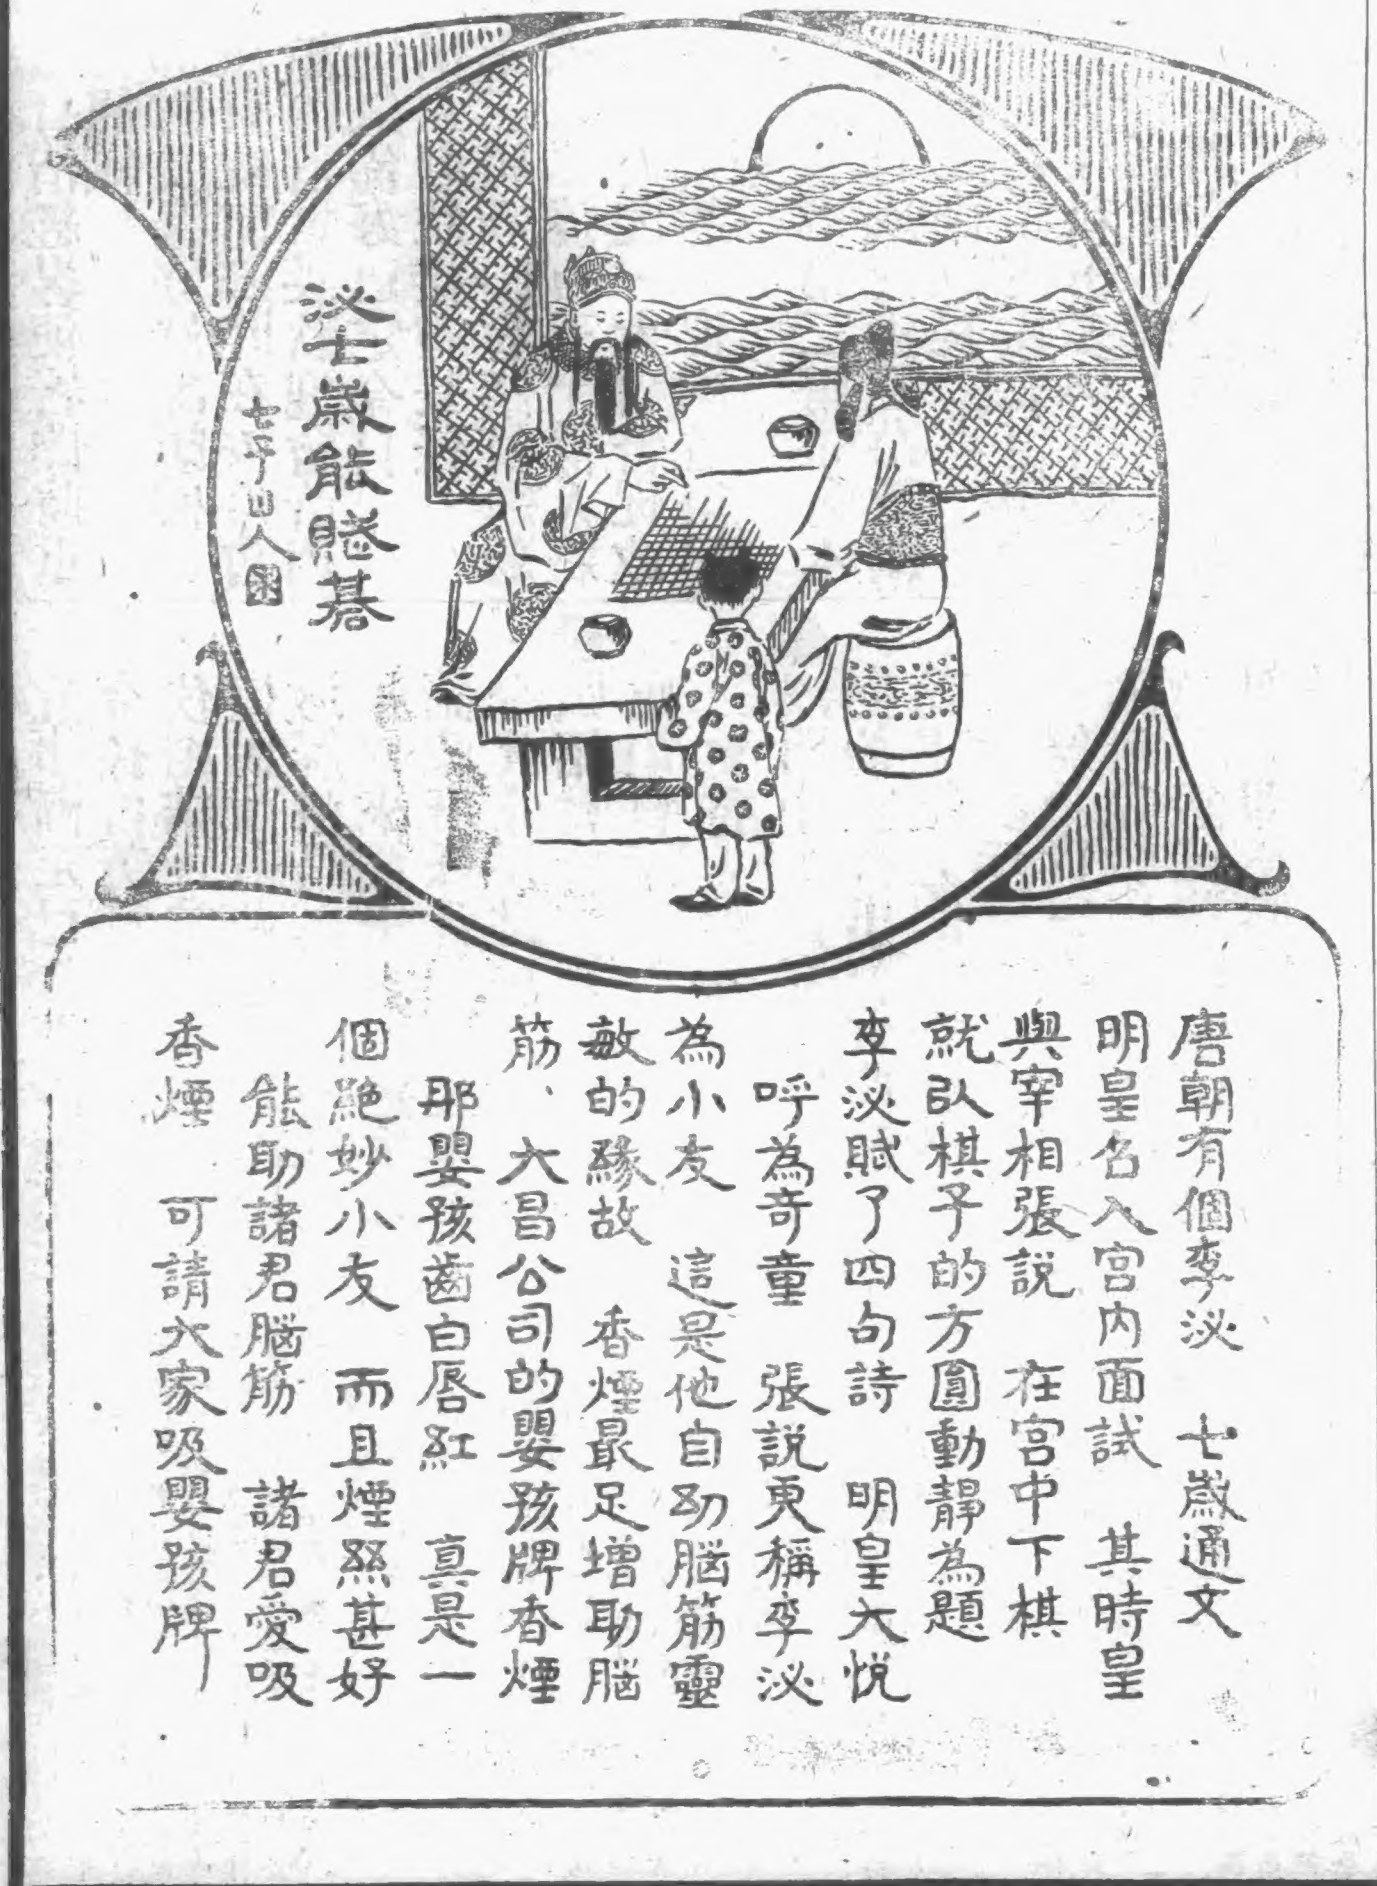 泌七歲能賦碁
七子山人
唐朝有個李泌 七歲通文
明皇名入宮內面試 其時皇
與宰相張説 在宮中下棋
就以棋子的方圓動靜為題
李泌賦了四句詩 明皇大悅
呼為奇童 張説更稱李泌
為小友 這是他自幼腦筋靈
敏的緣故 香煙最足增助腦
筋、大昌公司的嬰孩牌香煙
那嬰孩齒白唇紅 真是一
個絶妙小友 而且煙絲甚好
能助諸君腦筋 諸君愛吸
香煙 可請大家吸嬰孩牌